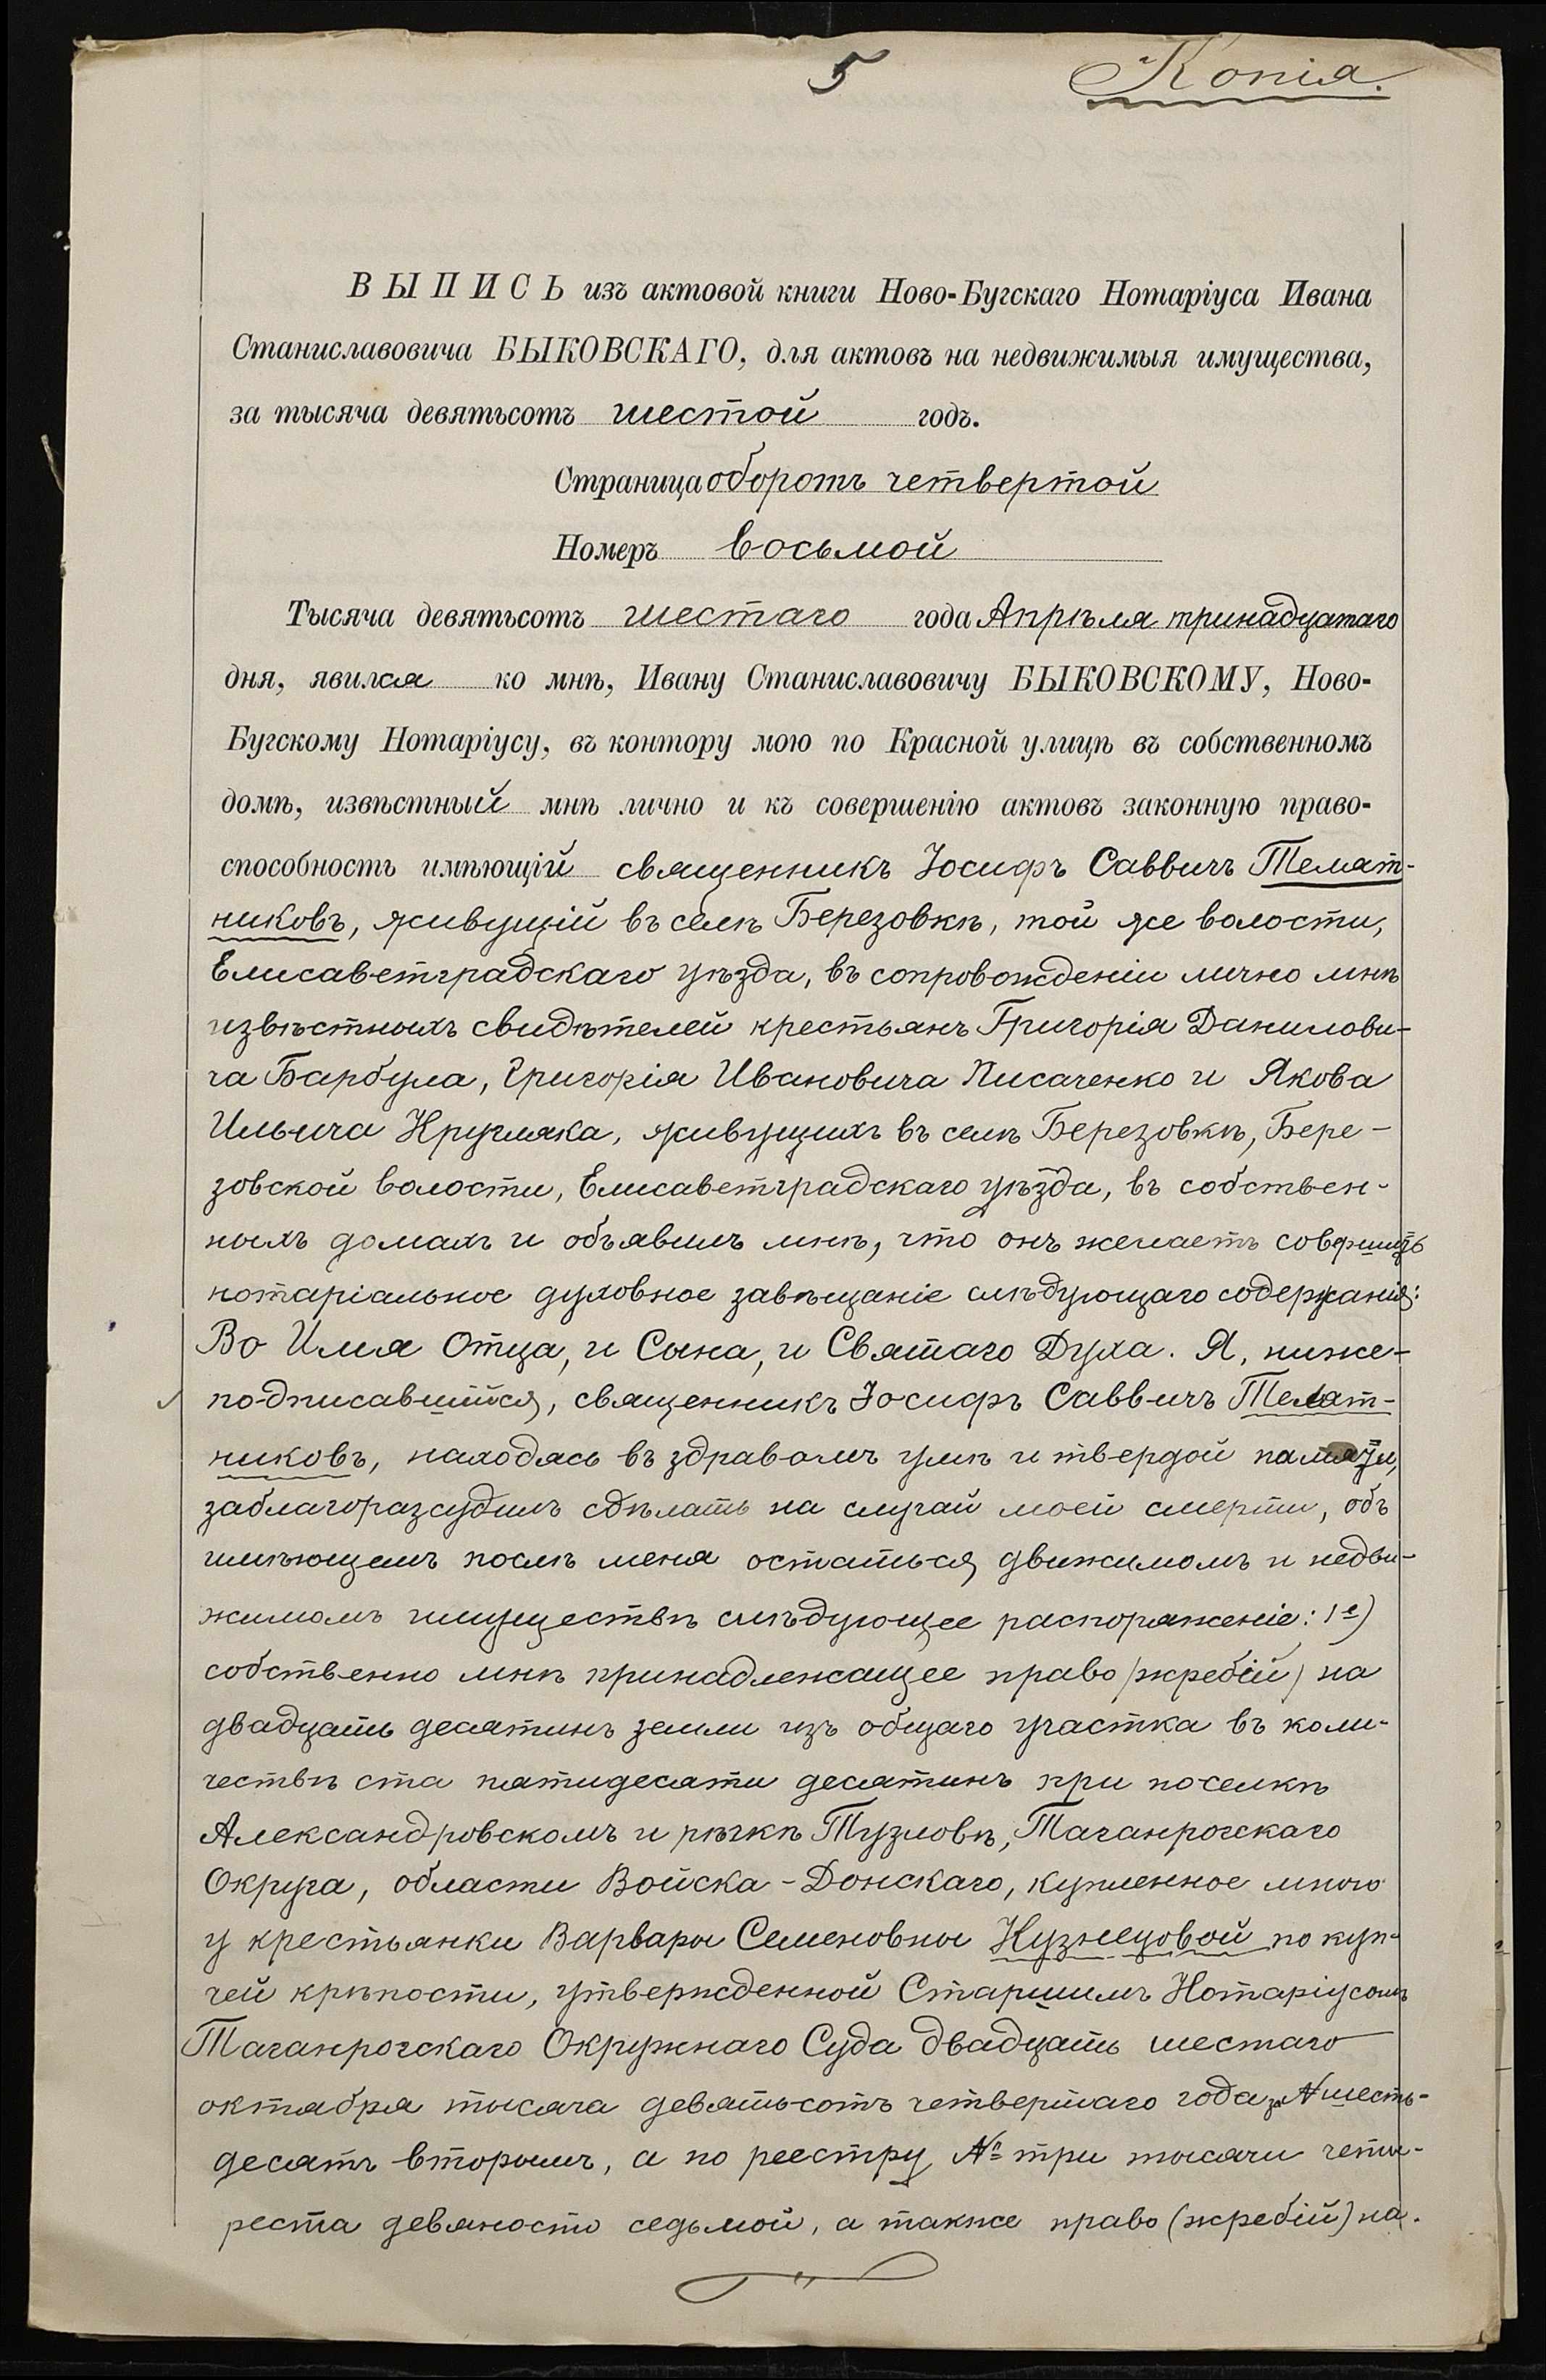 5
Копія.
ВЫПИСЬ изъ актовой книги Ново-Бугскаго Нотаріуса Ивана
Станиславовича БЫКОВСКАГО, для актовъ на недвижимыя имущества,
за тысяча девятьсотъ шестой годъ.
Страница оборотъ четвертой
Номеръ восьмой
Тысяча девятьсотъ шестаго года Апрѣля тринадцатаго
дня, явился ко мнѣ, Ивану Станиславовичу БЫКОВСКОМУ, Ново-
Бугскому Нотаріусу, въ контору мою по Красной улицѣ въ собственномъ
домѣ, извѣстный мнѣ лично и къ совершенію актовъ законную право-
способность имѣющій священникъ Іосифъ Саввичъ Темат-
никовъ, живущій въ селѣ Березовкѣ, той же волости,
Елисаветградскаго уѣзда, въ сопровожденіи лично мнѣ
извѣстныхъ свидѣтелей крестьянъ Григорія Данилови-
ча Барбула, Григорія Ивановича Писаченко и Якова
Ильича Кругляка, живущихъ въ селѣ Березовкѣ, Бере-
зовской волости, Елисаветградскаго уѣзда, въ собствен-
ныхъ домахъ и объявилъ мнѣ, что онъ желаетъ совершить
нотаріальное духовное завѣщаніе слѣдующаго содержанія:
Во Имя Отца, и Сына, и Святаго Духа. Я, ниже-
подписавшійся, священникъ Іосифъ Саввичъ Темат-
никовъ, находясь въ здравомъ умѣ и твердой памяти,
заблагоразсудилъ сдѣлать на случай моей смерти, объ
имѣющемъ послѣ меня остаться движимомъ и недви-
жимомъ имуществѣ слѣдующее распоряженіе: 1е)
собственно мнѣ принадлежащее право (жребій) на
двадцать десятинъ земли изъ общаго участка въ коли-
чествѣ ста пятидесяти десятинъ при поселкѣ
Александровскомъ и рѣчкѣ Тузловѣ, Таганрогскаго
Округа, области Войска-Донскаго, купленное мною
у крестьянки Варвары Семеновны Кузнецовой по куп-
чей крѣпости, утвержденной Старшимъ Нотаріусомъ
Таганрогскаго Окружнаго Суда двадцать шестаго
октября тысяча девятьсотъ четвертаго года за № шесть-
десятъ вторымъ, а по реестру № три тысячи четы-
реста девяносто седьмой, а также право (жребій) на.